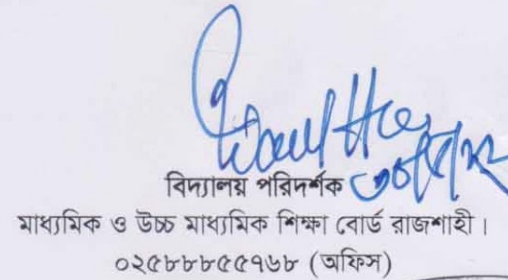 বিদ্যালয় পরিদর্শক
মাধ্যমিক ও উচ্চ মাধ্যমিক শিক্ষা বোর্ড রাজশাহী।
০২৫৮৮৮৫৫৭৬৮ (অফিস)